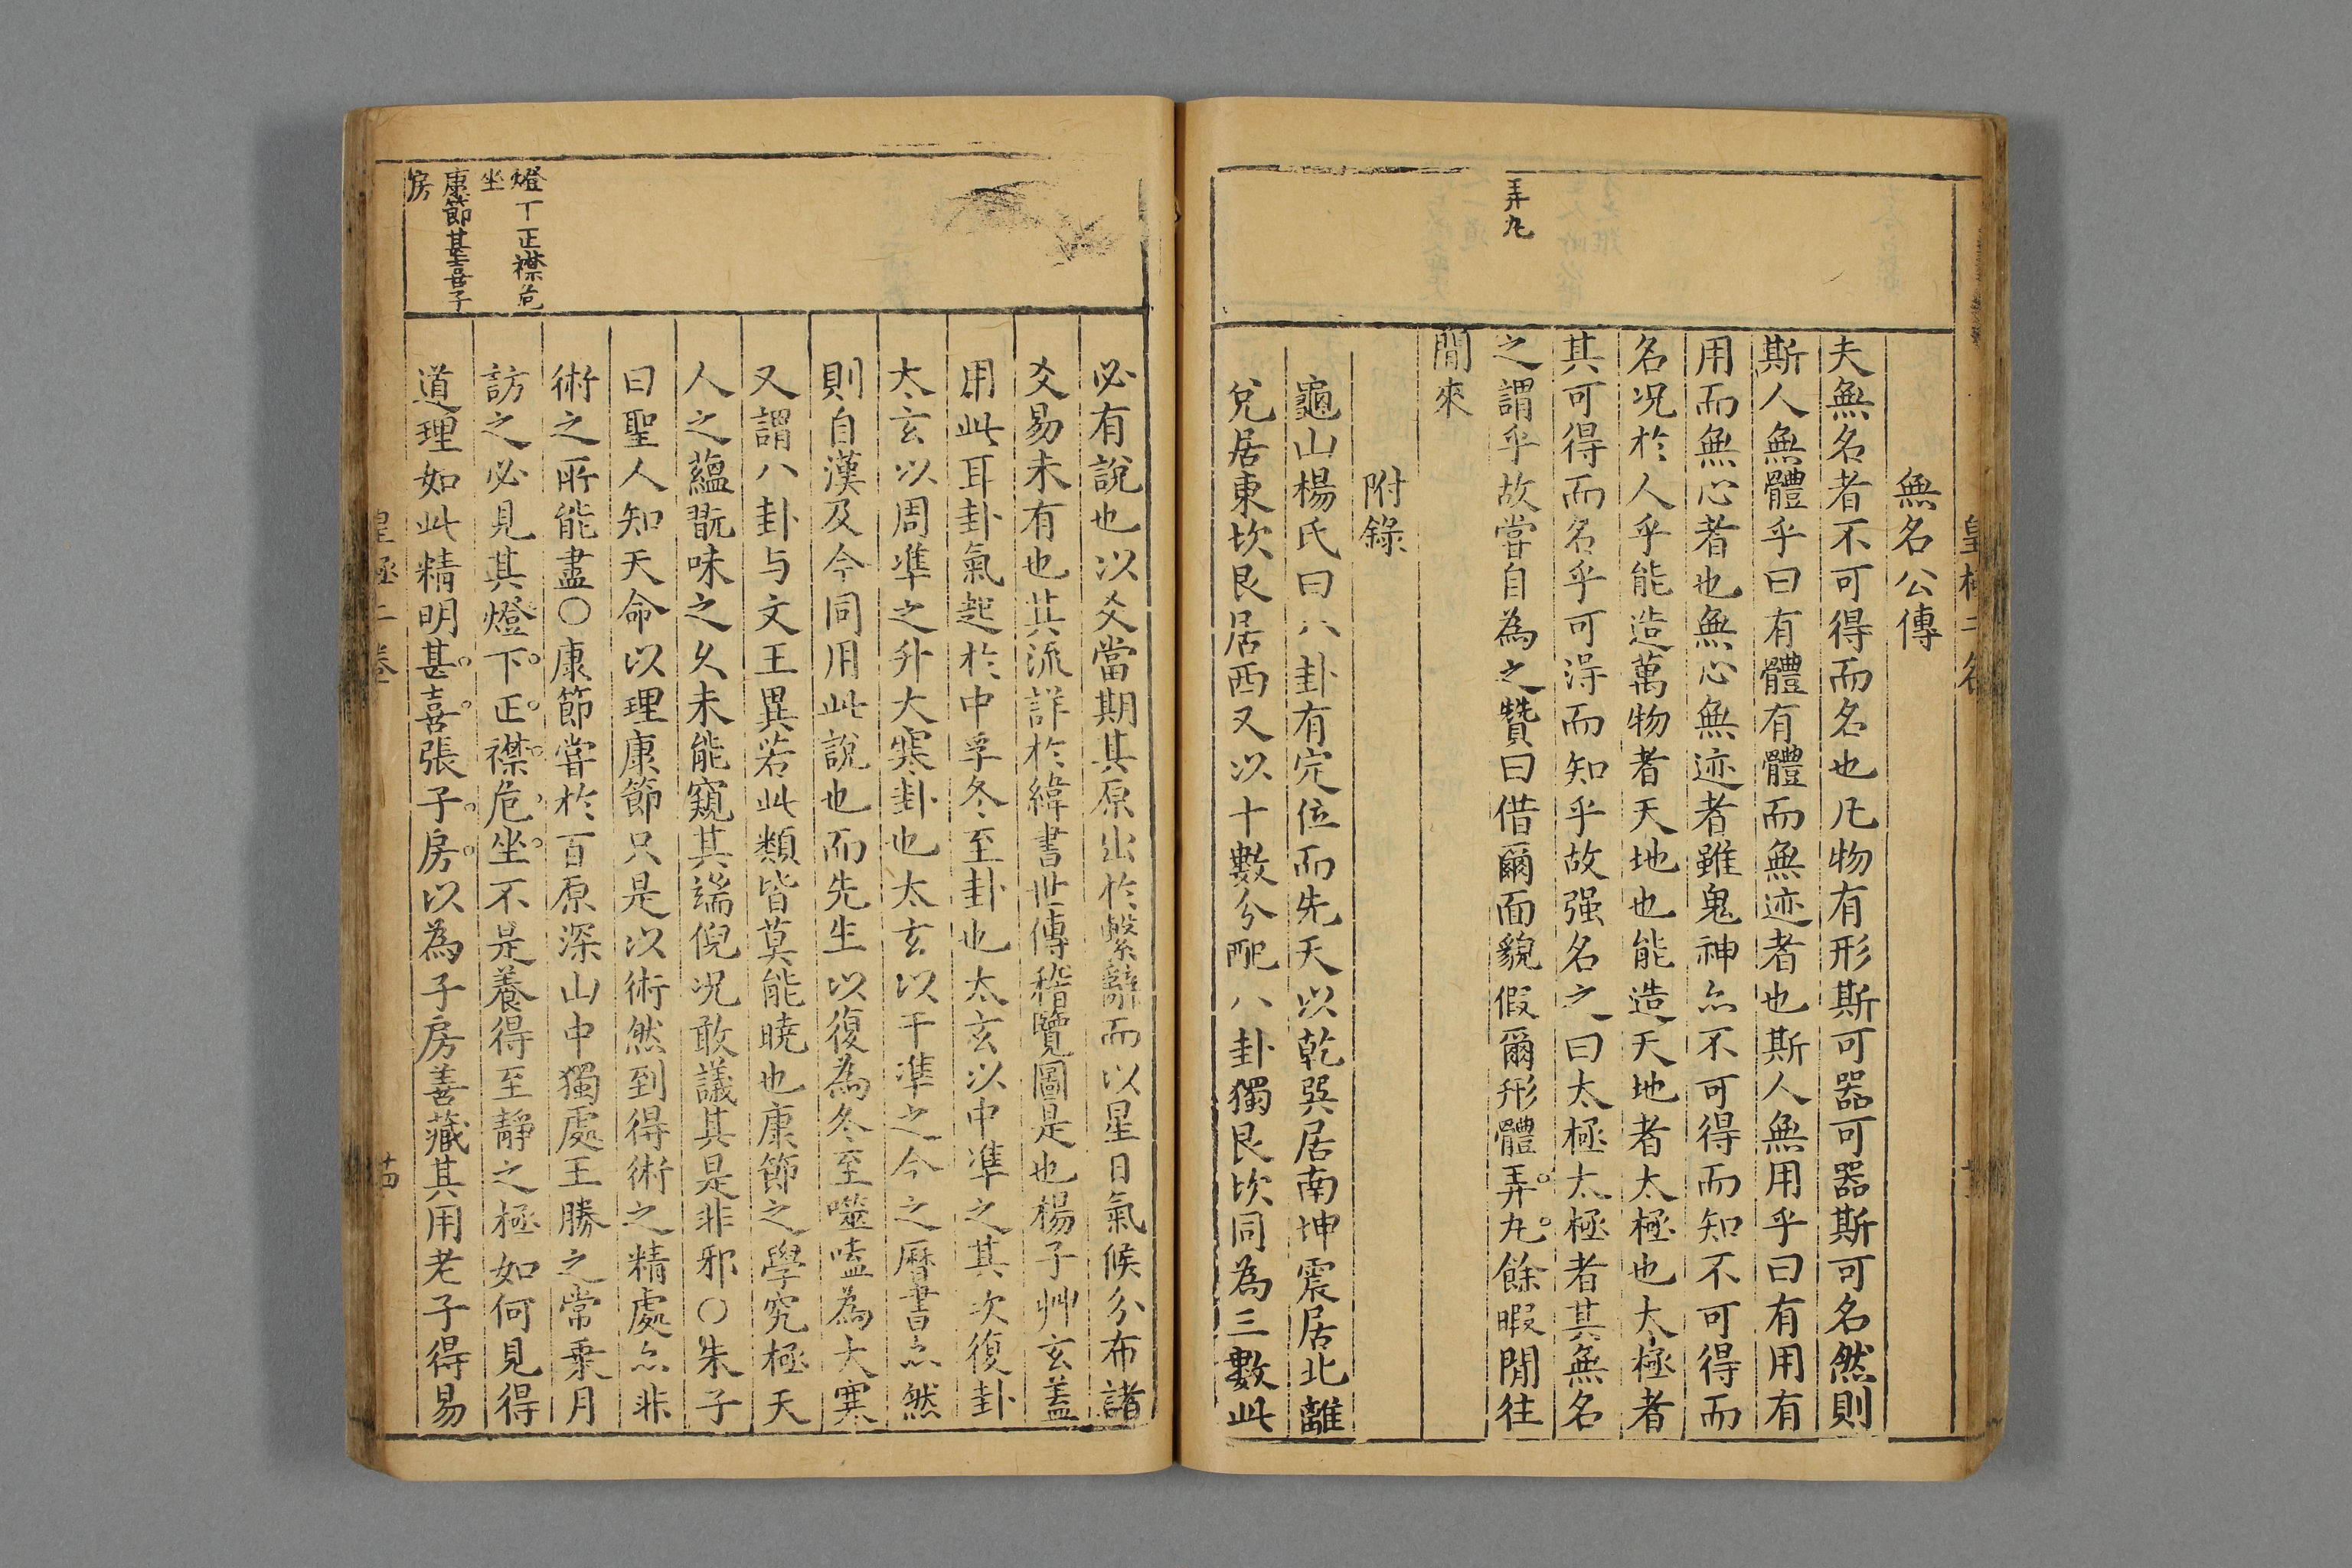 弄丸
無名公傳
夫無名者不可得而名也凡物有形斯可器可器斯可名然則
斯人無體乎曰有體有體而無迹者也斯人無用乎曰有用有
用而無心者也無心無迹者雖鬼神亦不可得而知不可得而
名况於人乎能造萬物者天地也能造天地者太極也太極者
其可得而名乎可得而知乎故强名之曰太極太極者其無名
之謂乎故嘗自為之贊曰借爾面貌假爾形體弄丸餘暇閒往
閒來
附錄
龜山楊氏曰八卦有定位而先天以乾巽居南坤震居北離
兌居東坎艮居西又以十數分配八卦獨艮坎同為三數此
燈下正襟危
坐
康節甚喜子
房
必有說也以爻當期其原出於繫辭而以星日氣候分布諸
爻易未有也其流詳於緯書世傳稽覽圖是也楊子艸玄盖
用此耳卦氣起於中孚冬至卦也太玄以中凖之其次復卦
太玄以周凖之升大寒卦也太玄以干凖之今之曆書亦然
則自漢及今同用此說也而先生以復為冬至噬嗑為大寒
又謂八卦与文王異若此類皆莫能曉也康節之學究極天
人之蘊翫味之久未能窺其端倪况敢議其是非邪○朱子
曰聖人知天命以理康節只是以術然到得術之精處亦非
術之所能盡○康節嘗於百原深山中獨處王勝之常乗月
訪之必見其燈下正襟危坐不是養得至靜之極如何見得
道理如此精明甚喜張子房以為子房善藏其用老子得易
皇極二卷